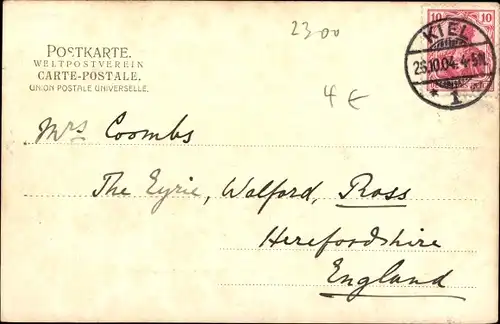 2300
10 10
KIEL
26.10.04. 4-5N.
* 1
POSTKARTE.
WELTPOSTVEREIN
CARTE-POSTALE.
UNION POSTALE UNIVERSELLE.
4 €
Mrs Coombs
The Eyrie, Walford, Ross
Herefordshire
England